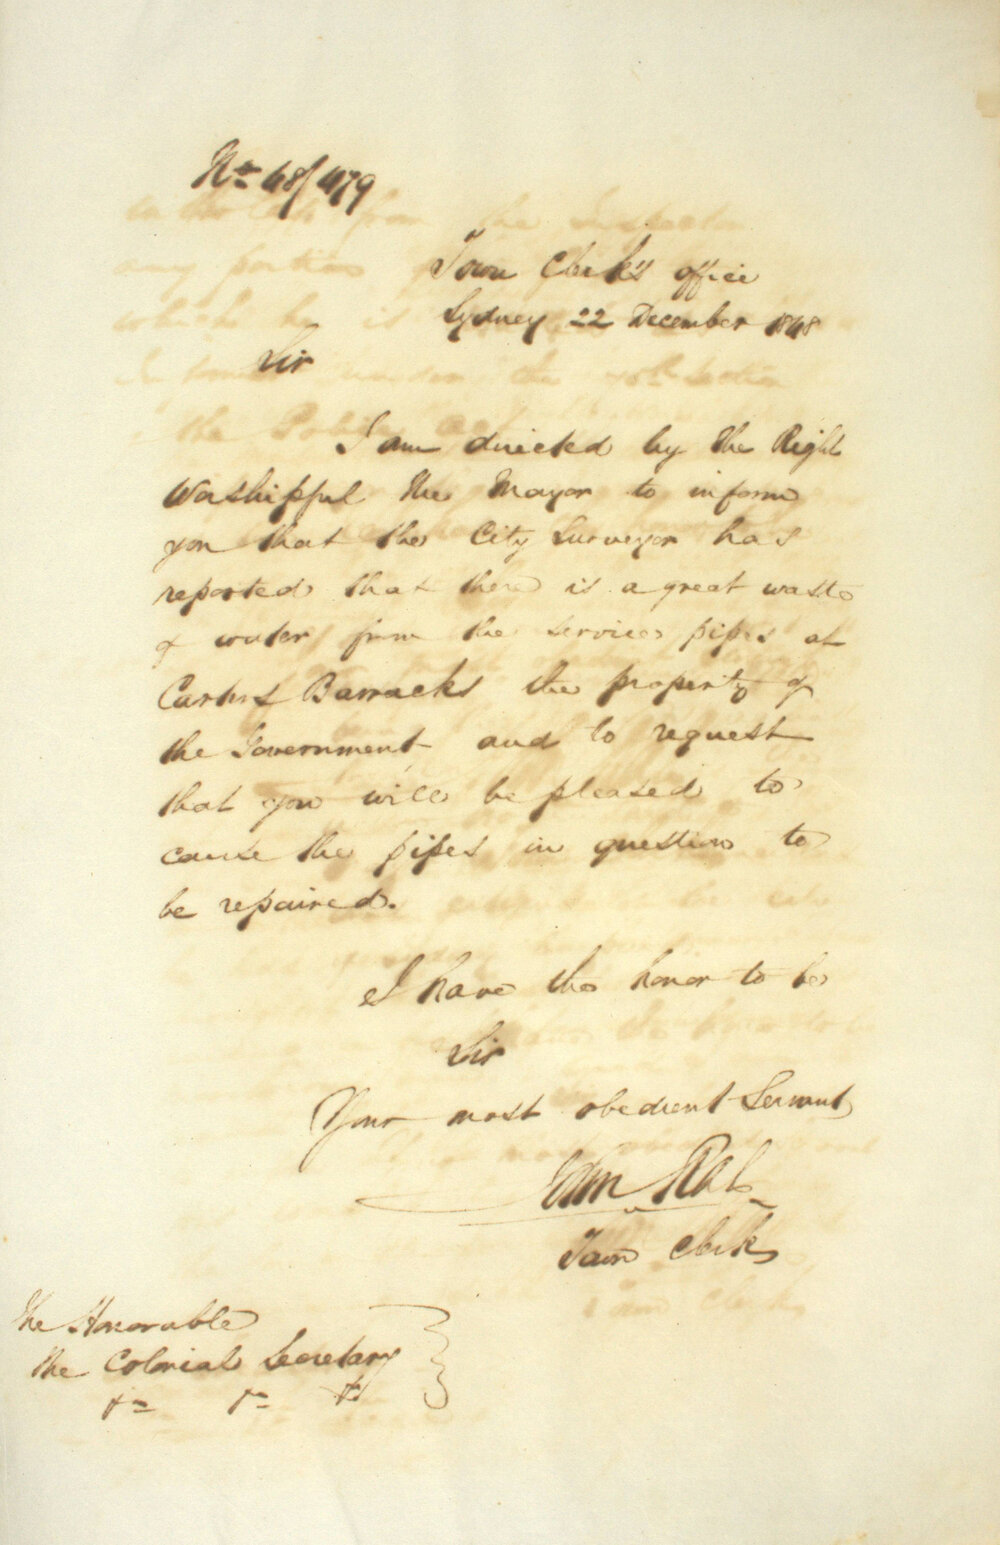 No 48/479
Town Clerk's office
Sydney 22 December 1848
Sir
I am directed by the Right
Worshipful the Mayor to inform
you that the City Surveyor has
reported that there is a great waste
of water from the service pipes at
Carters Barracks the property of
the Government and to request
that you will be pleased to
cause the pipes in question to
be repaired.
I have the honor to be
Sir
Your most obedient Servant
John Rae
Town Clerk
The Honorable
the Colonial Secretary